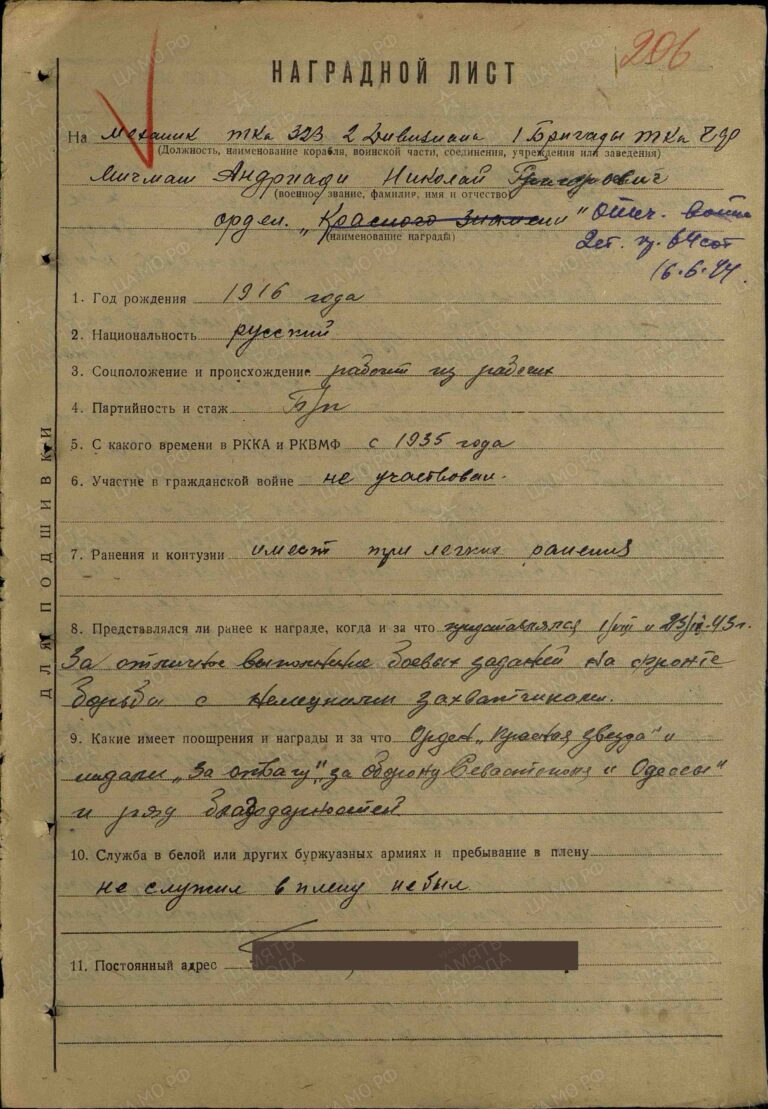 206
НАГРАДНОЙ ЛИСТ
На Механик тка 323 2 Дивизиана 1 Бригады тка ЧФ
(Должность, наименование корабля, воинской части, соединения, учреждения или заведения)
Мичман Андриади Николай Григорович
(военное звание, фамилия, имя и отчество)
орден. „Красного знамени" Отеч. войны
(наименование награды)
2ст. 
16.6.44.
1. Год рождения 1916 года
2. Национальность русский
3. Соцположение и происхождение рабочий из рабочих
4. Партийность и стаж Б/п
5. С какого времени в РККА и РКВМФ с 1935 года
6. Участие в гражданской войне не участвовал.
7. Ранения и контузии имеет три легких ранения
8. Представлялся ли ранее к награде, когда и за что представлялся 1/VIII и 43 г.
За отличное выполнение боевых заданий на фронте
борьбы с немецкими захватчиками.
9. Какие имеет поощрения и награды и за что Орден „Красная звезда" и
медали „За отвагу", за оборону Севастополя и Одессы"
и ряд благодарностей
10. Служба в белой или других буржуазных армиях и пребывание в плену
не служил в плену не был
11. Постоянный адрес
ДЛЯ ПОДШИВКИ
ЦАМО.РФ
ПАМЯТЬ НАРОДА